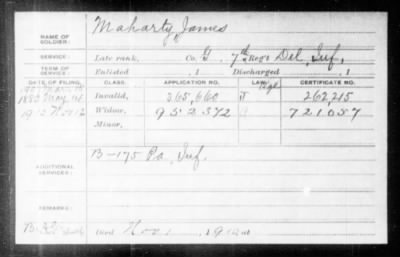 NAME OF SOLDIER: Maharty, James
SERVICE: Late rank, Co. G, 7th Reg't Del. Inf.
TERM OF SERVICE: Enlisted , 1 Discharged , 1
DATE OF FILING. CLASS. APPLICATION NO. LAW. CERTIFICATE NO.
1880 May Invalid, 365,660 J 262,215
1912 Nov 12 Widow, 952372 721057
Minor,
ADDITIONAL SERVICES: B-175 Pa. Inf.
REMARKS:
Died Nov. 1, 1912 at